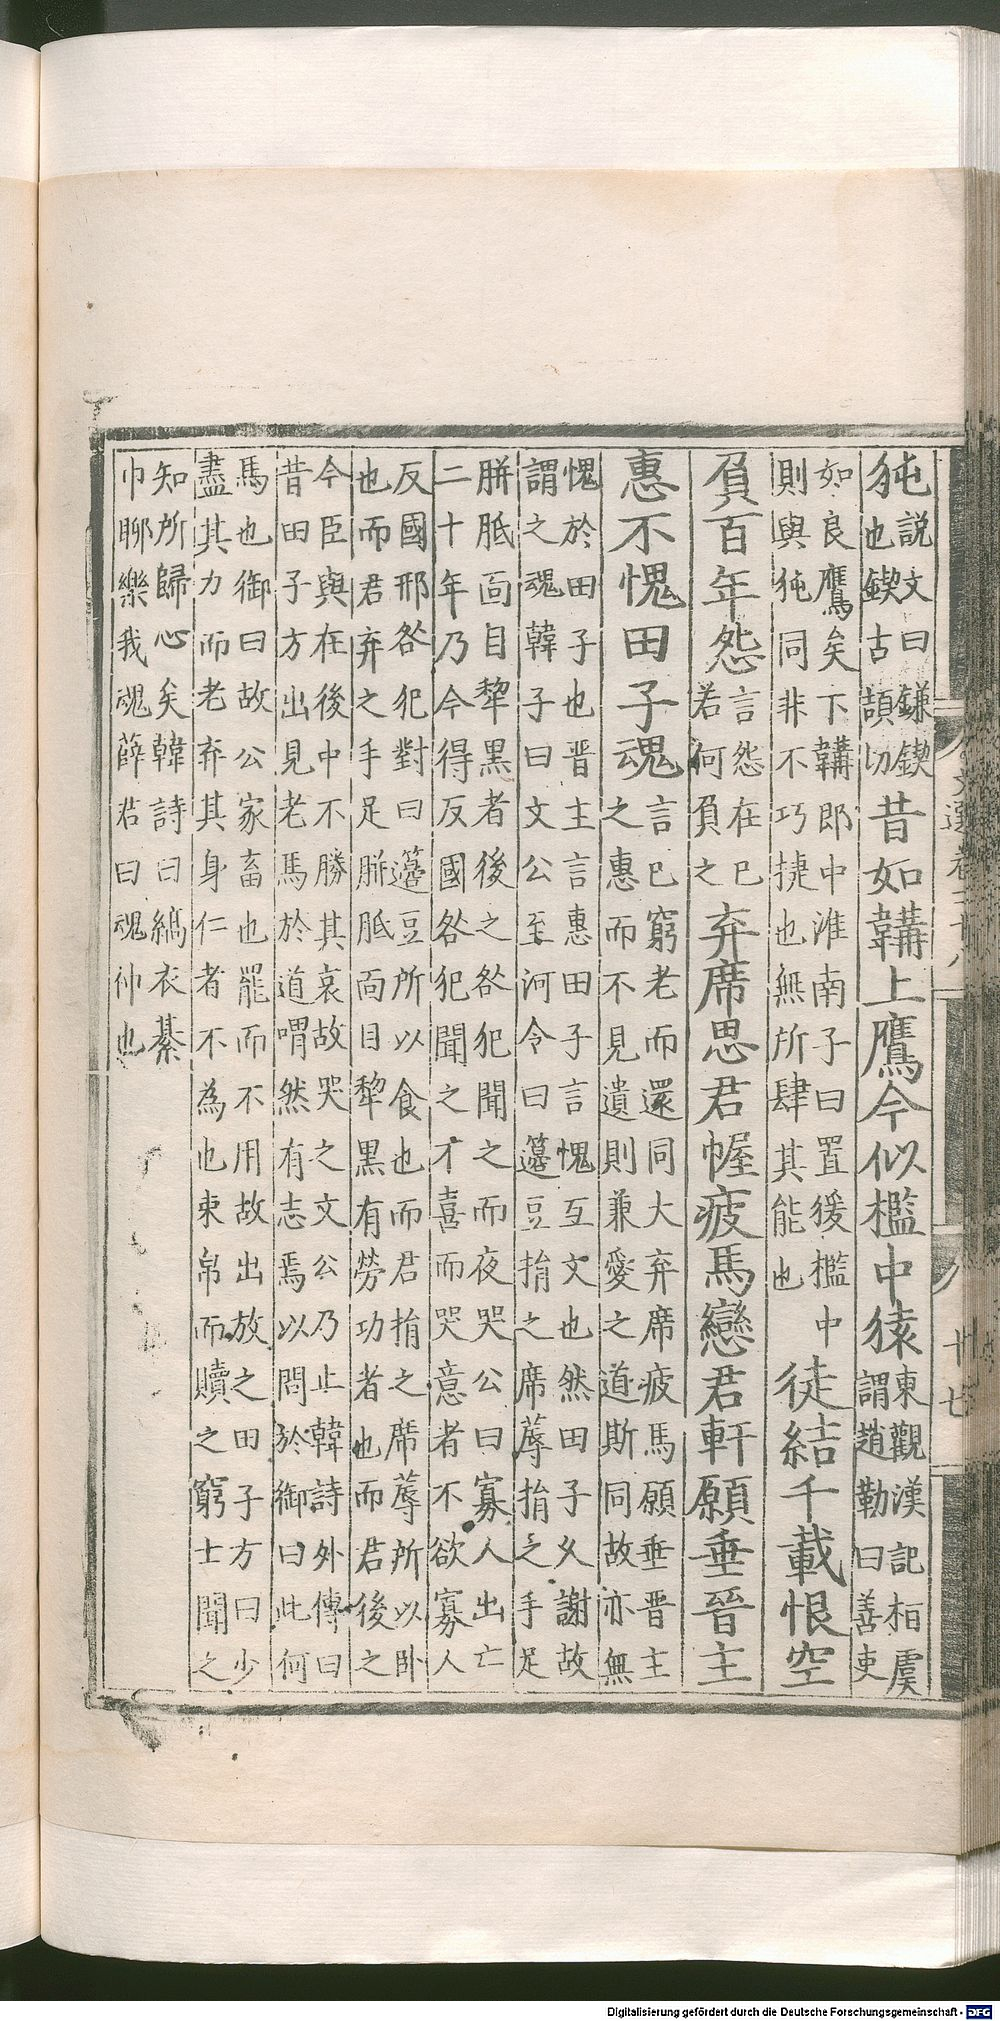 文選卷二十八 廿七
㹠說文曰鎌鍥也鍥古頡切昔如韝上鷹今似檻中猿東觀漢記桓虞謂趙勒曰善吏
如良鷹矣下韝郎中淮南子曰置猨檻中則與㹠同非不巧捷也無所肆其能也徒結千載恨空
負百年怨言怨在已若何負之弃席思君幄疲馬戀君軒願垂晉主
惠不愧田子魂言已窮老而還同大弃席疲馬願垂晉主之惠而不見遺則兼愛之道斯同故亦無
愧於田子也晉主言惠田子言愧互文也然田子久謝故
謂之魂韓子曰文公至河令曰籩豆捐之席蓐捐之手足
胼胝面目犂黑者後之咎犯聞之而夜哭公曰寡人出亡
二十年乃今得反國咎犯聞之才喜而哭意者不欲寡人
反國邪咎犯對曰籩豆所以食也而君捐之席蓐所以卧
也而君弃之手足胼胝面目犂黑有勞功者也而君後之
今臣與在後中不勝其哀故哭之文公乃止韓詩外傳曰
昔田子方出見老馬於道喟然有志焉以問於御曰此何
馬也御曰故公家畜也罷而不用故出放之田子方曰少
盡其力而老弃其身仁者不為也束帛而贖之窮士聞之
知所歸心矣韓詩曰縞衣綦
巾聊樂我魂薛君曰魂神也
Digitalisierung gefördert durch die Deutsche Forschungsgemeinschaft - DFG